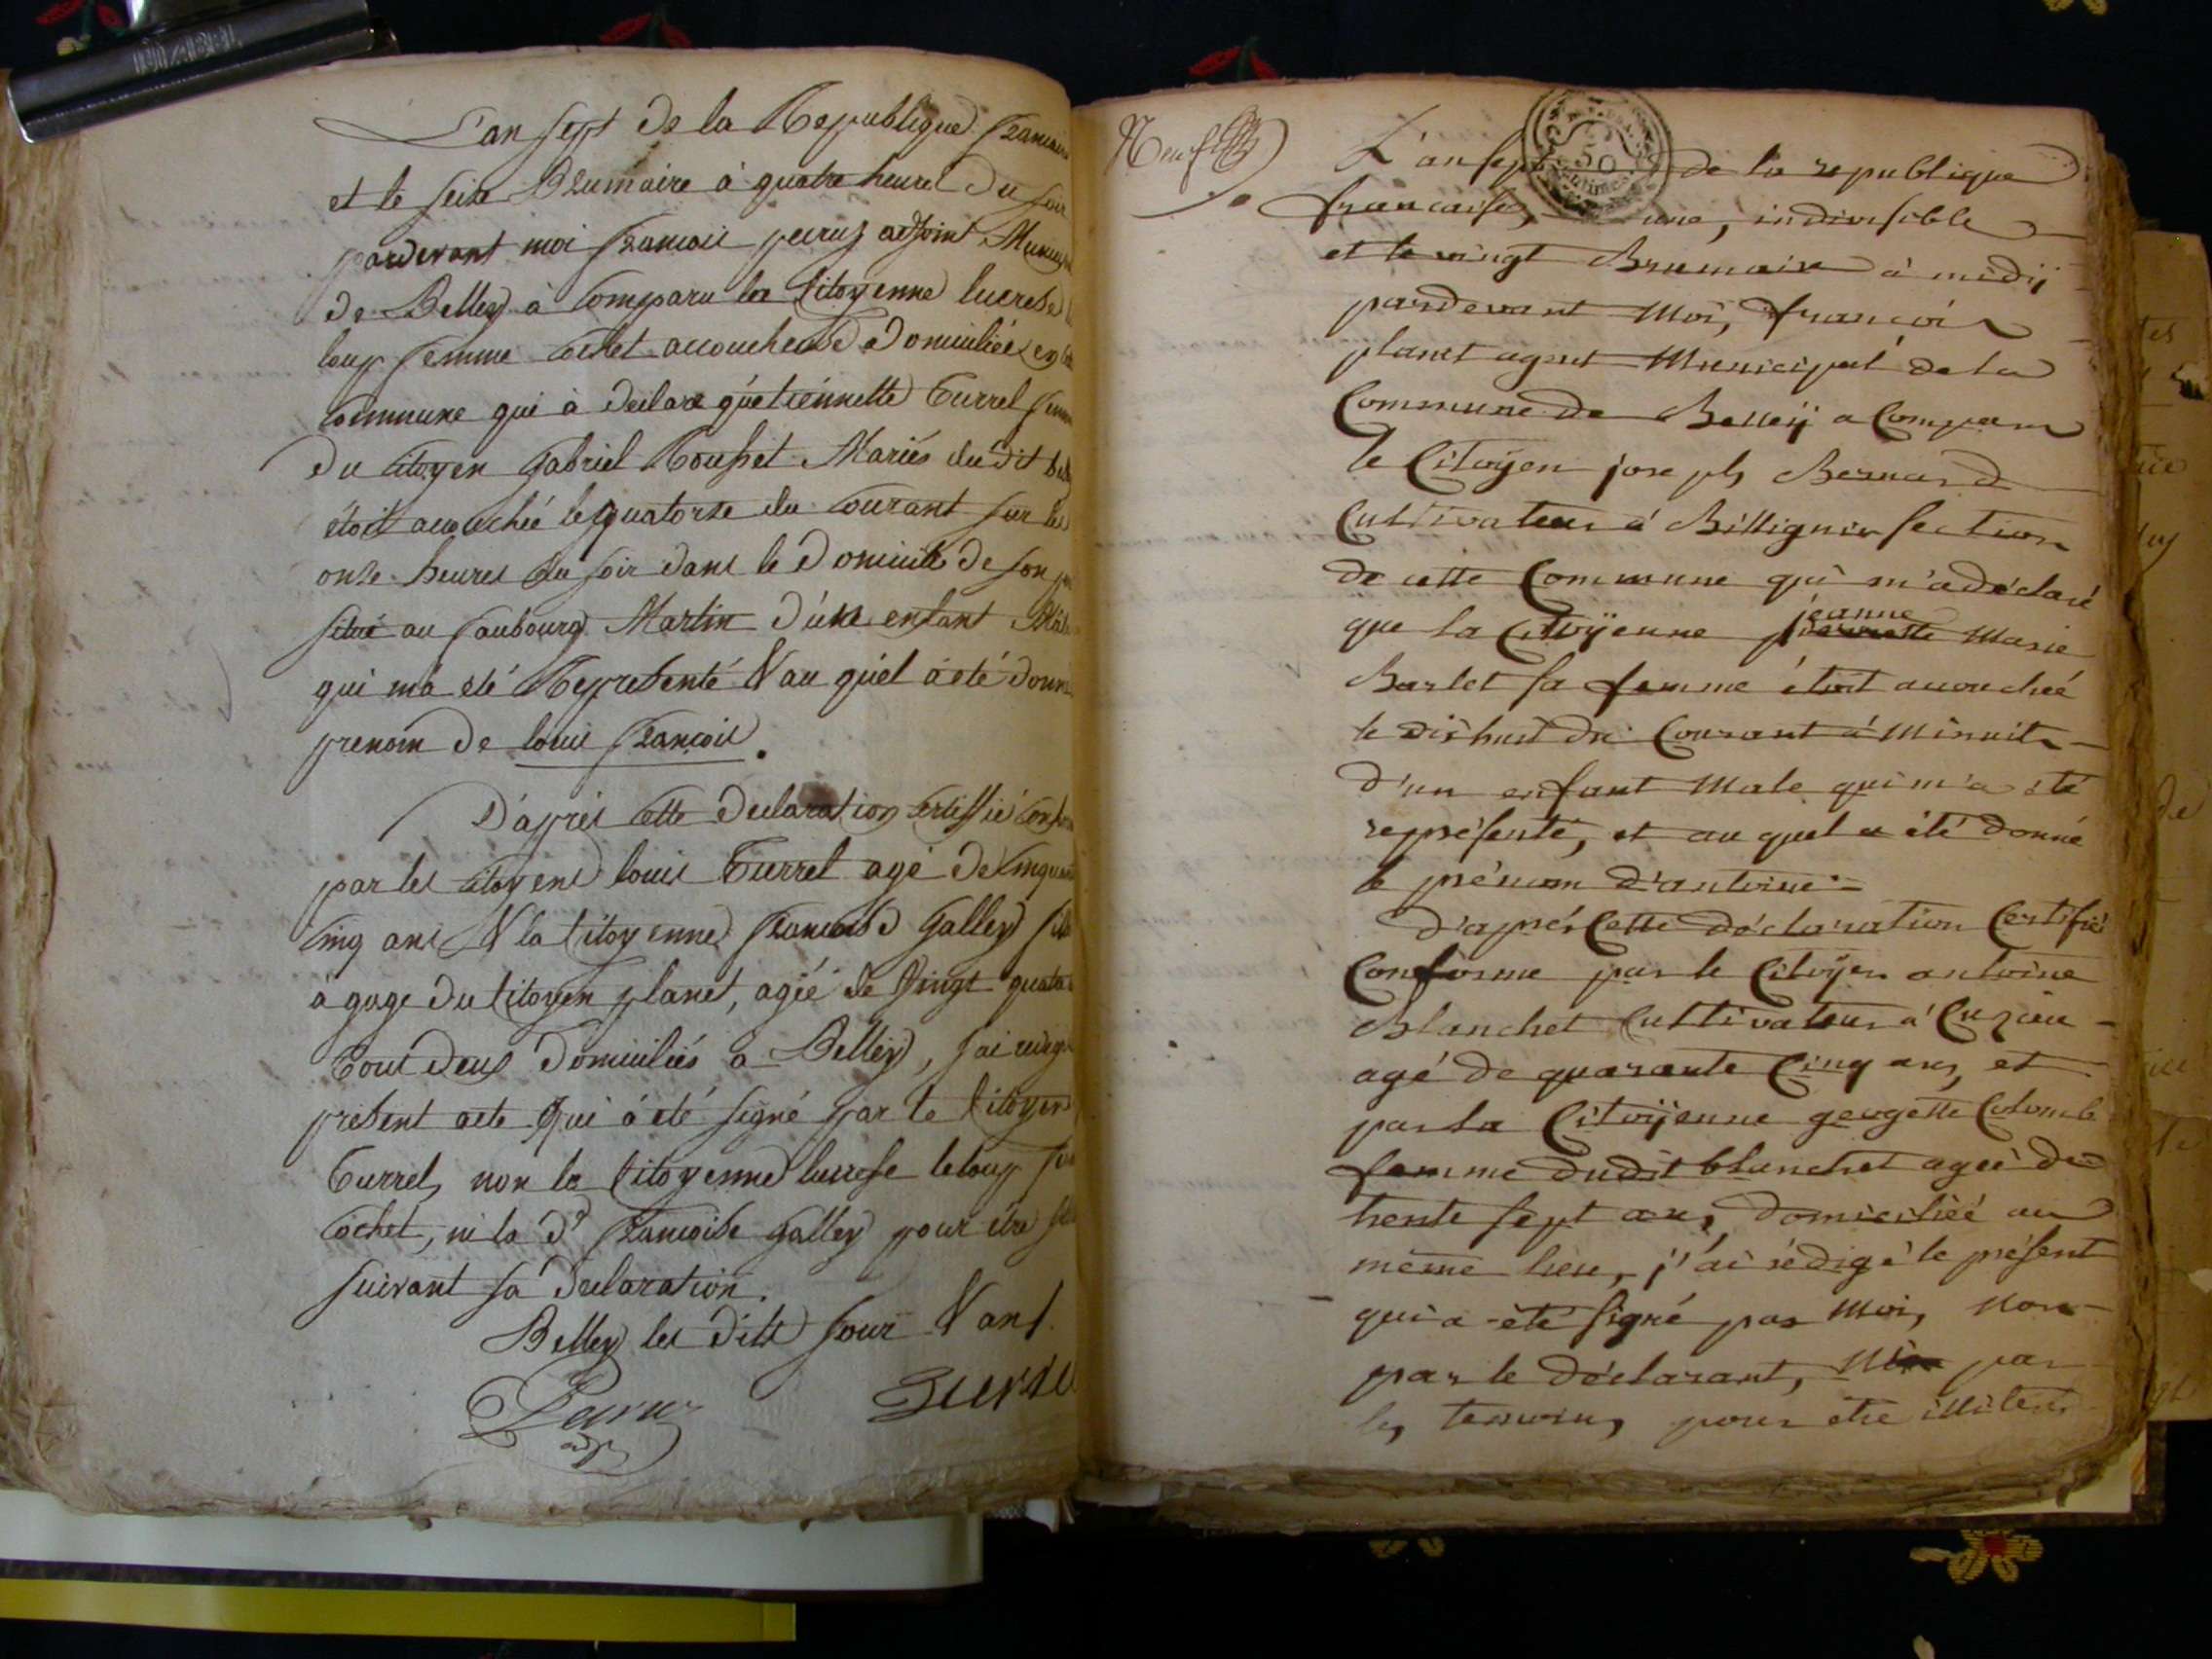 L'an sept de la Republique francaise
et le seize Brumaire à quatre heures du soir
pardevant moi francois peiruz adjoint Munici
de Belley à comparu la Citoyenne lucrese
loup femme cochet accoucheuse domiciliée en
commune qui à declaré qu'etiennette Turrel femme
du Citoyen gabriel Rousset Mariés dudit
étoit acouchée le quatorze du courant sur les
onze heures du soir dans le domicile de son
situé au faubourg Martin d'une enfant Mâle
qui m'a été Representé & au quel a eté donné
prenom de louis francois.
D'après cette declaration certiffié conforme
par les citoyens louis Turrel agé de Cinquante
cinq ans & la Citoyenne francoise galley fille
à gage du Citoyen planet, agée de Vingt quatre
tous deux domiciliés a Belley, j'ai redigé
present acte qui à eté signé par le Citoyen
Turrel, non la Citoyenne lucrese leloup
cochet, ni la de francoise galley pour etre
suivant sa declaration.
Belley les dits jour & ans.
Turrel
adj
Neuf
50
L'an sept de la republique
francaise, une, indivisible
et le vingt Brumaire à midij
pardevant Moi, francois
planet agent Municipal de la
Commune de Belleÿ a Comparu
le Citoÿen joseph Bernard
Cultivateur à Billignin section
de cette Commune qui m'a déclaré
jeanne
que la Citoÿenne Marie
Barlet sa femme étoit accouchée
le dixhuit du Courant à Minuit
d'un enfant Male qui m'a été
représenté, et au quel a été donné
le prénom d'antoine
d'après Cette déclaration Certifié
Conforme par le Citoÿen antoine
Blanchet Cultivateur à Cuzieu
agé de quarante Cinq ans, et
par la Citoÿenne geogette Colomb
femme dudit blanchet agée de
trente sept ans, domiciliée au
même lieu, j'ai rédigé le présent
qui a été signé par Moi, Non
par le déclarant, Ni par
les temoins, pour etre illiterés